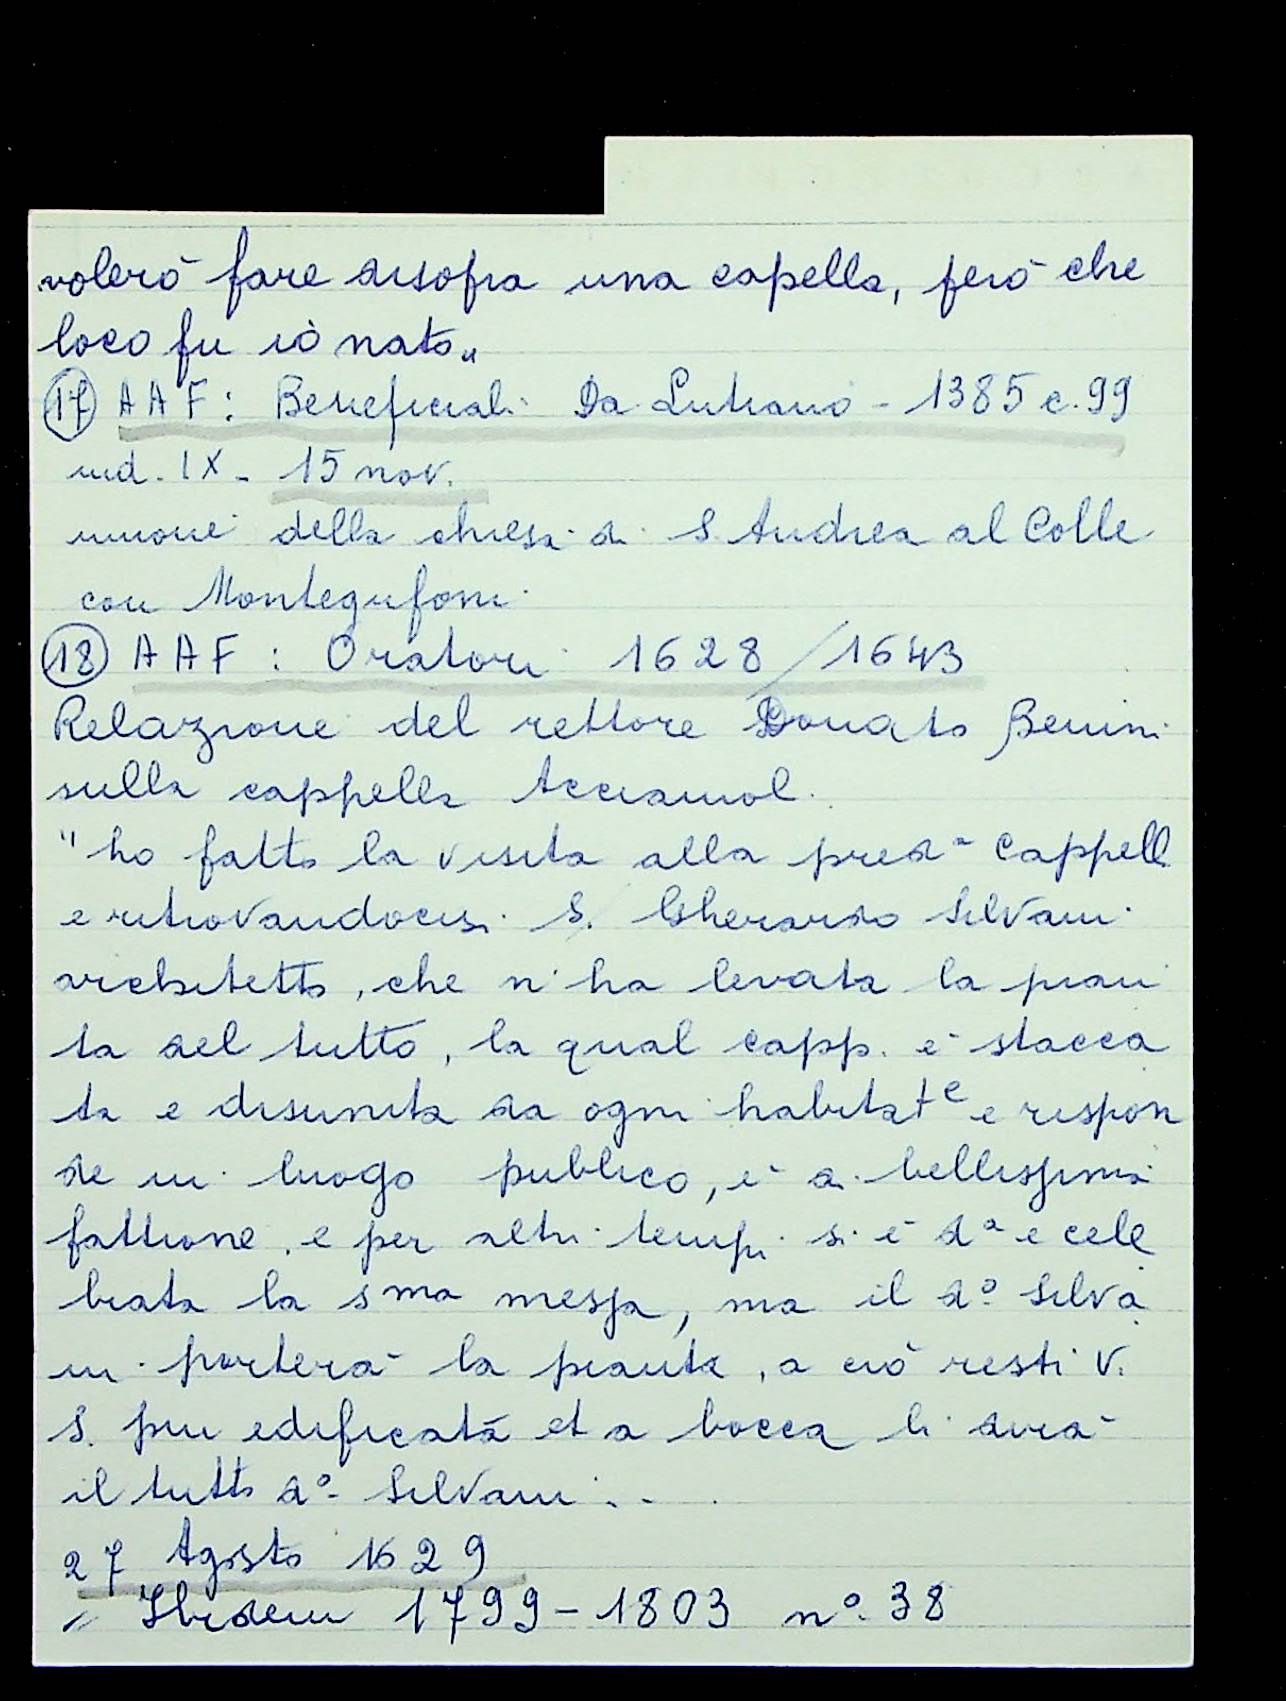 volerò fare disopra una capella, però che
loco fu iò nato„
17 AAF: Beneficiali Da Lutiano - 1385 c. 99
ind. IX - 15 nov.
unione della chiesa di S. Andrea al Colle
con Montegufoni
18 AAF: Oratori 1628/1643
Relazione del rettore Donato Benini
sulla cappella Acciaiuoli
"ho fatto la visita alla predᵃ Cappell
e ritrovandocisi S. Gherardo Silvani
architetto, che n'ha levata la pian
ta del tutto, la qual capp. è stacca
ta e disunita da ogni habitatᵉ e rispon
de in luogo publico, è di bellissima
fattione, e per altri tempi si è dᵃ e cele
brata la sᵐᵃ messa, ma il d° Silva
ni porterà la pianta, a ciò resti V.
S. più edificatà et a bocca li dirà
il tutto d° Silvani..
27 Agosto 1629
" Ibidem 1799-1803 n° 38